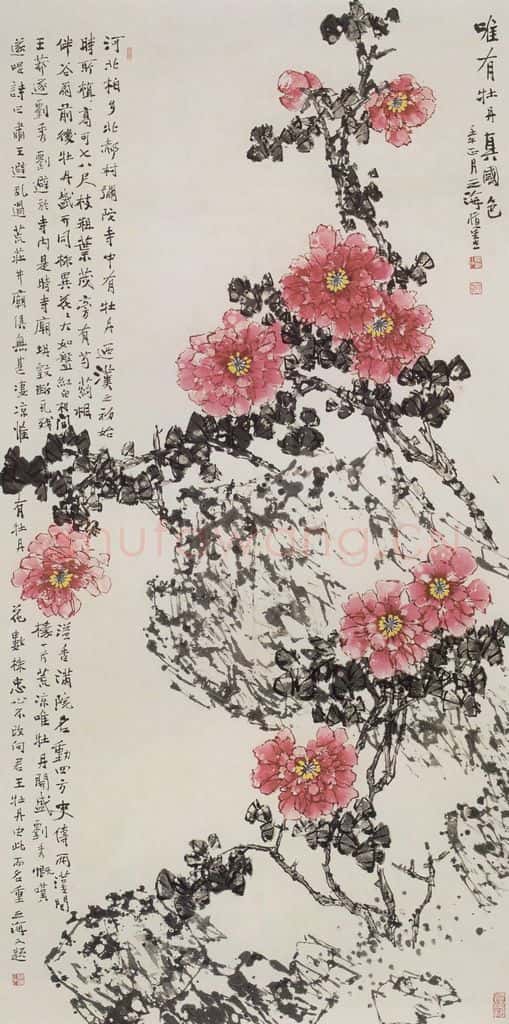 唯有牡丹真國色
正月之海
河北柏乡北郝村彌陀寺中有牡丹西漢之初始
時所植高可七八尺枝粗葉茂旁有芍葯相
伴谷雨前後牡丹盛开同株異花花大如盤紅白相間
溢香滿院名動四方史傳兩漢間
王莽逐劉秀劉避於寺内是時寺廟坍毀斷瓦残
椽一片荒凉唯牡丹開盛劉秀慨嘆
遂吟詩曰肅王避乱過荒莊井廟俱無甚凄凉惟有牡丹花數株忠心不改向君王牡丹由此而名重之海又題
shufawang.cn